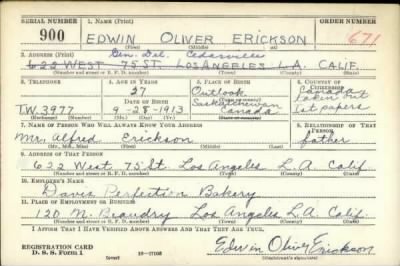 SERIAL NUMBER 1. NAME (Print) ORDER NUMBER
900 EDWIN OLIVER ERICKSON 671
(First) (Middle) (Last)
Gen. Del. Cedarville
3. ADDRESS (Print)
622 WEST 75 ST. LOS ANGELES L.A. CALIF.
(Number and street or R. F. D. number) (Town) (County) (State)
3. TELEPHONE 4. AGE IN YEARS 5. PLACE OF BIRTH 6. COUNTRY OF CITIZENSHIP
27 Outlook Canada
DATE OF BIRTH Saskatchewan taken out
T.W. 3977 9-28-1913 Canada 1st papers
(Exchange) (Number) (Mo.) (Day) (Yr.) (State or country)
7. NAME OF PERSON WHO WILL ALWAYS KNOW YOUR ADDRESS 8. RELATIONSHIP OF THAT PERSON
Mr. Alfred Erickson father
(Mr., Mrs., Miss) (First) (Middle) (Last)
9. ADDRESS OF THAT PERSON
622 West 75 St. Los Angeles L.A. Calif.
(Number and street or R. F. D. number) (Town) (County) (State)
10. EMPLOYER'S NAME
Davis Perfection Bakery
11. PLACE OF EMPLOYMENT OR BUSINESS
120 N. Beaudry Los Angeles L.A. Calif.
(Number and street or R. F. D. number) (Town) (County) (State)
I AFFIRM THAT I HAVE VERIFIED ABOVE ANSWERS AND THAT THEY ARE TRUE.
REGISTRATION CARD
D. S. S. Form 1 Edwin Oliver Erickson
(Registrant's signature)